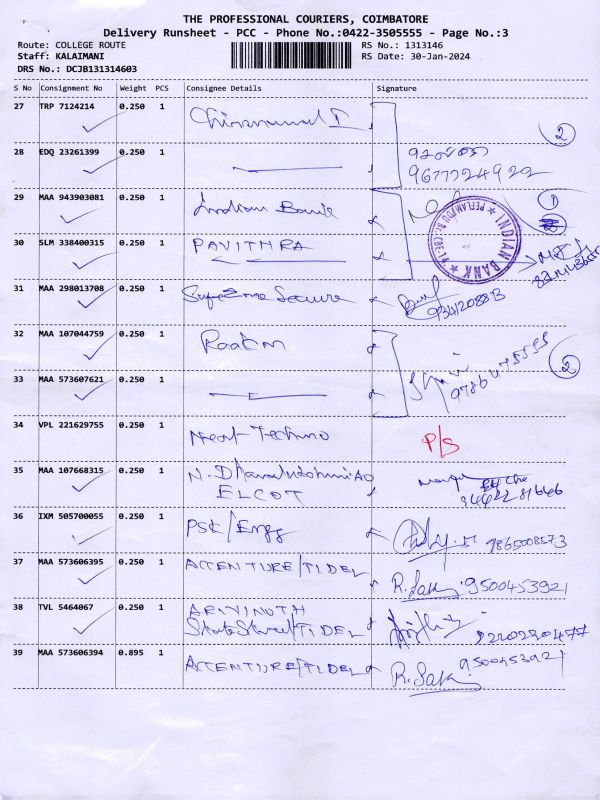 THE PROFESSIONAL COURIERS, COIMBATORE
Delivery Runsheet - PCC - Phone No.:0422-3505555 - Page No.:3
Route: COLLEGE ROUTE RS No.: 1313146
Staff: KALAIMANI RS Date: 30-Jan-2024
DRS No.: DCJB131314603
S No Consignment No Weight PCS Consignee Details Signature
27 TRP 7124214 0.250 1
2
28 EDQ 23261399 0.250 1
29 MAA 943903081 0.250 1 Indian Bank 1
INDIAN BANK
30 SLM 338400315 0.250 1 PAVITHRA
31 MAA 298013708 0.250 1 Supreme Secure
32 MAA 107044759 0.250 1
2
33 MAA 573607621 0.250 1
34 VPL 221629755 0.250 1 Neat Techno P/S
35 MAA 107668315 0.250 1
ELCOT
36 IXM 505700055 0.250 1 PSE/Engg
37 MAA 573606395 0.250 1 ACCENTURE/TIDEL R. 9500453921
38 TVL 5464067 0.250 1 ARIVINOTH
State Street/TIDEL
39 MAA 573606394 0.895 1 ACCENTURE/TIDEL R. 9500453921